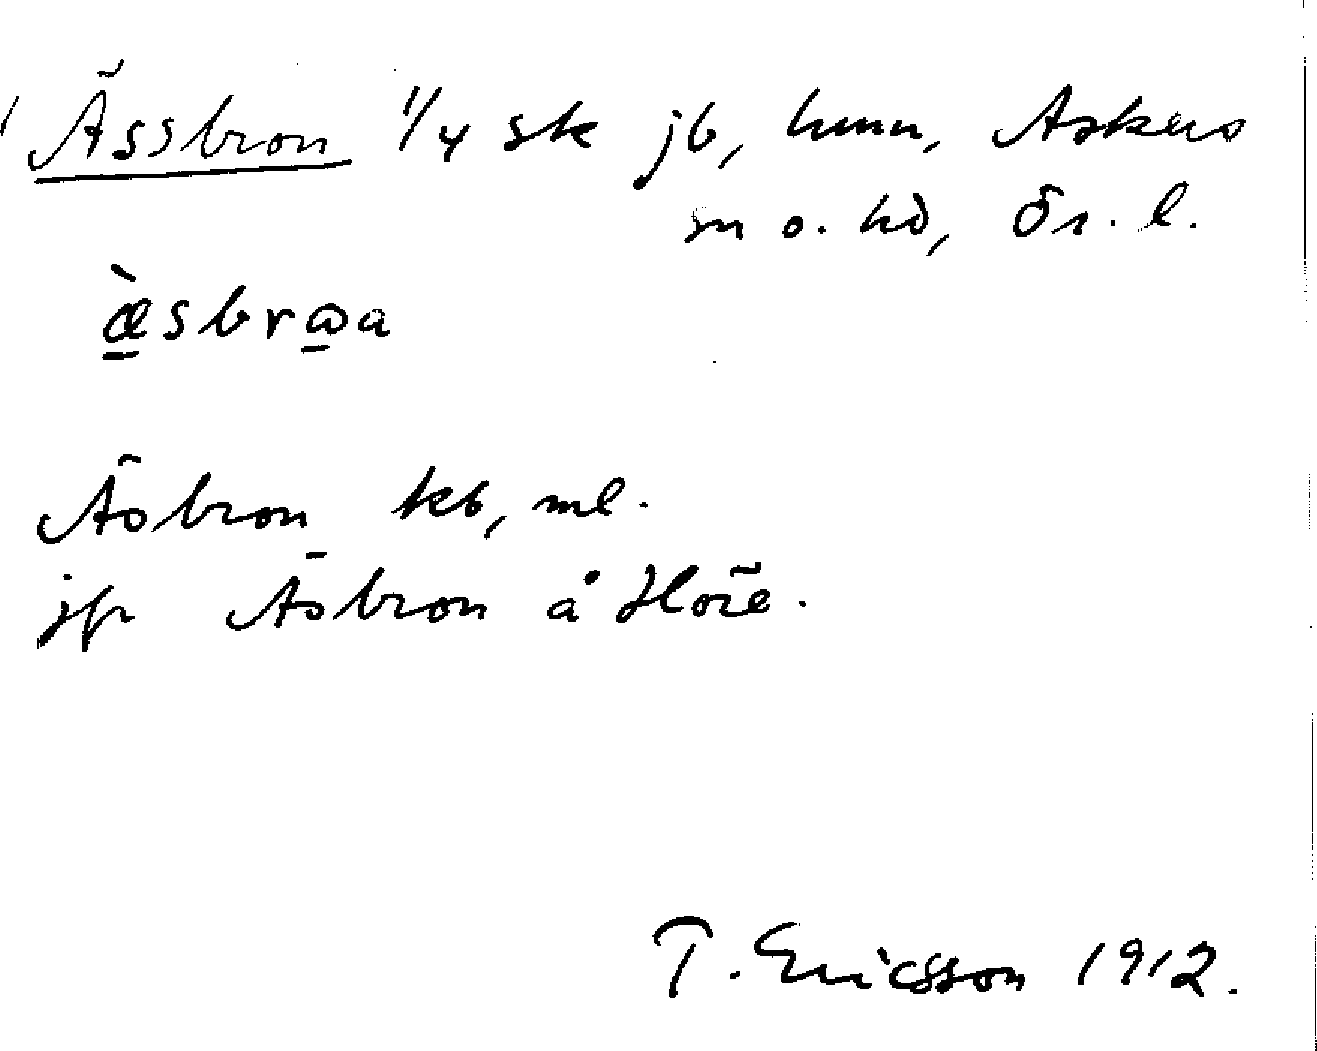 Ässbron 1/4 sk jb, hmm, Askers
sn o. hd, Ör. l.
æ̱̀sbrꞷ̱a
Äsbron kb, ml.
jfr Äsbron å Höre.
T. Ericsson 1912.